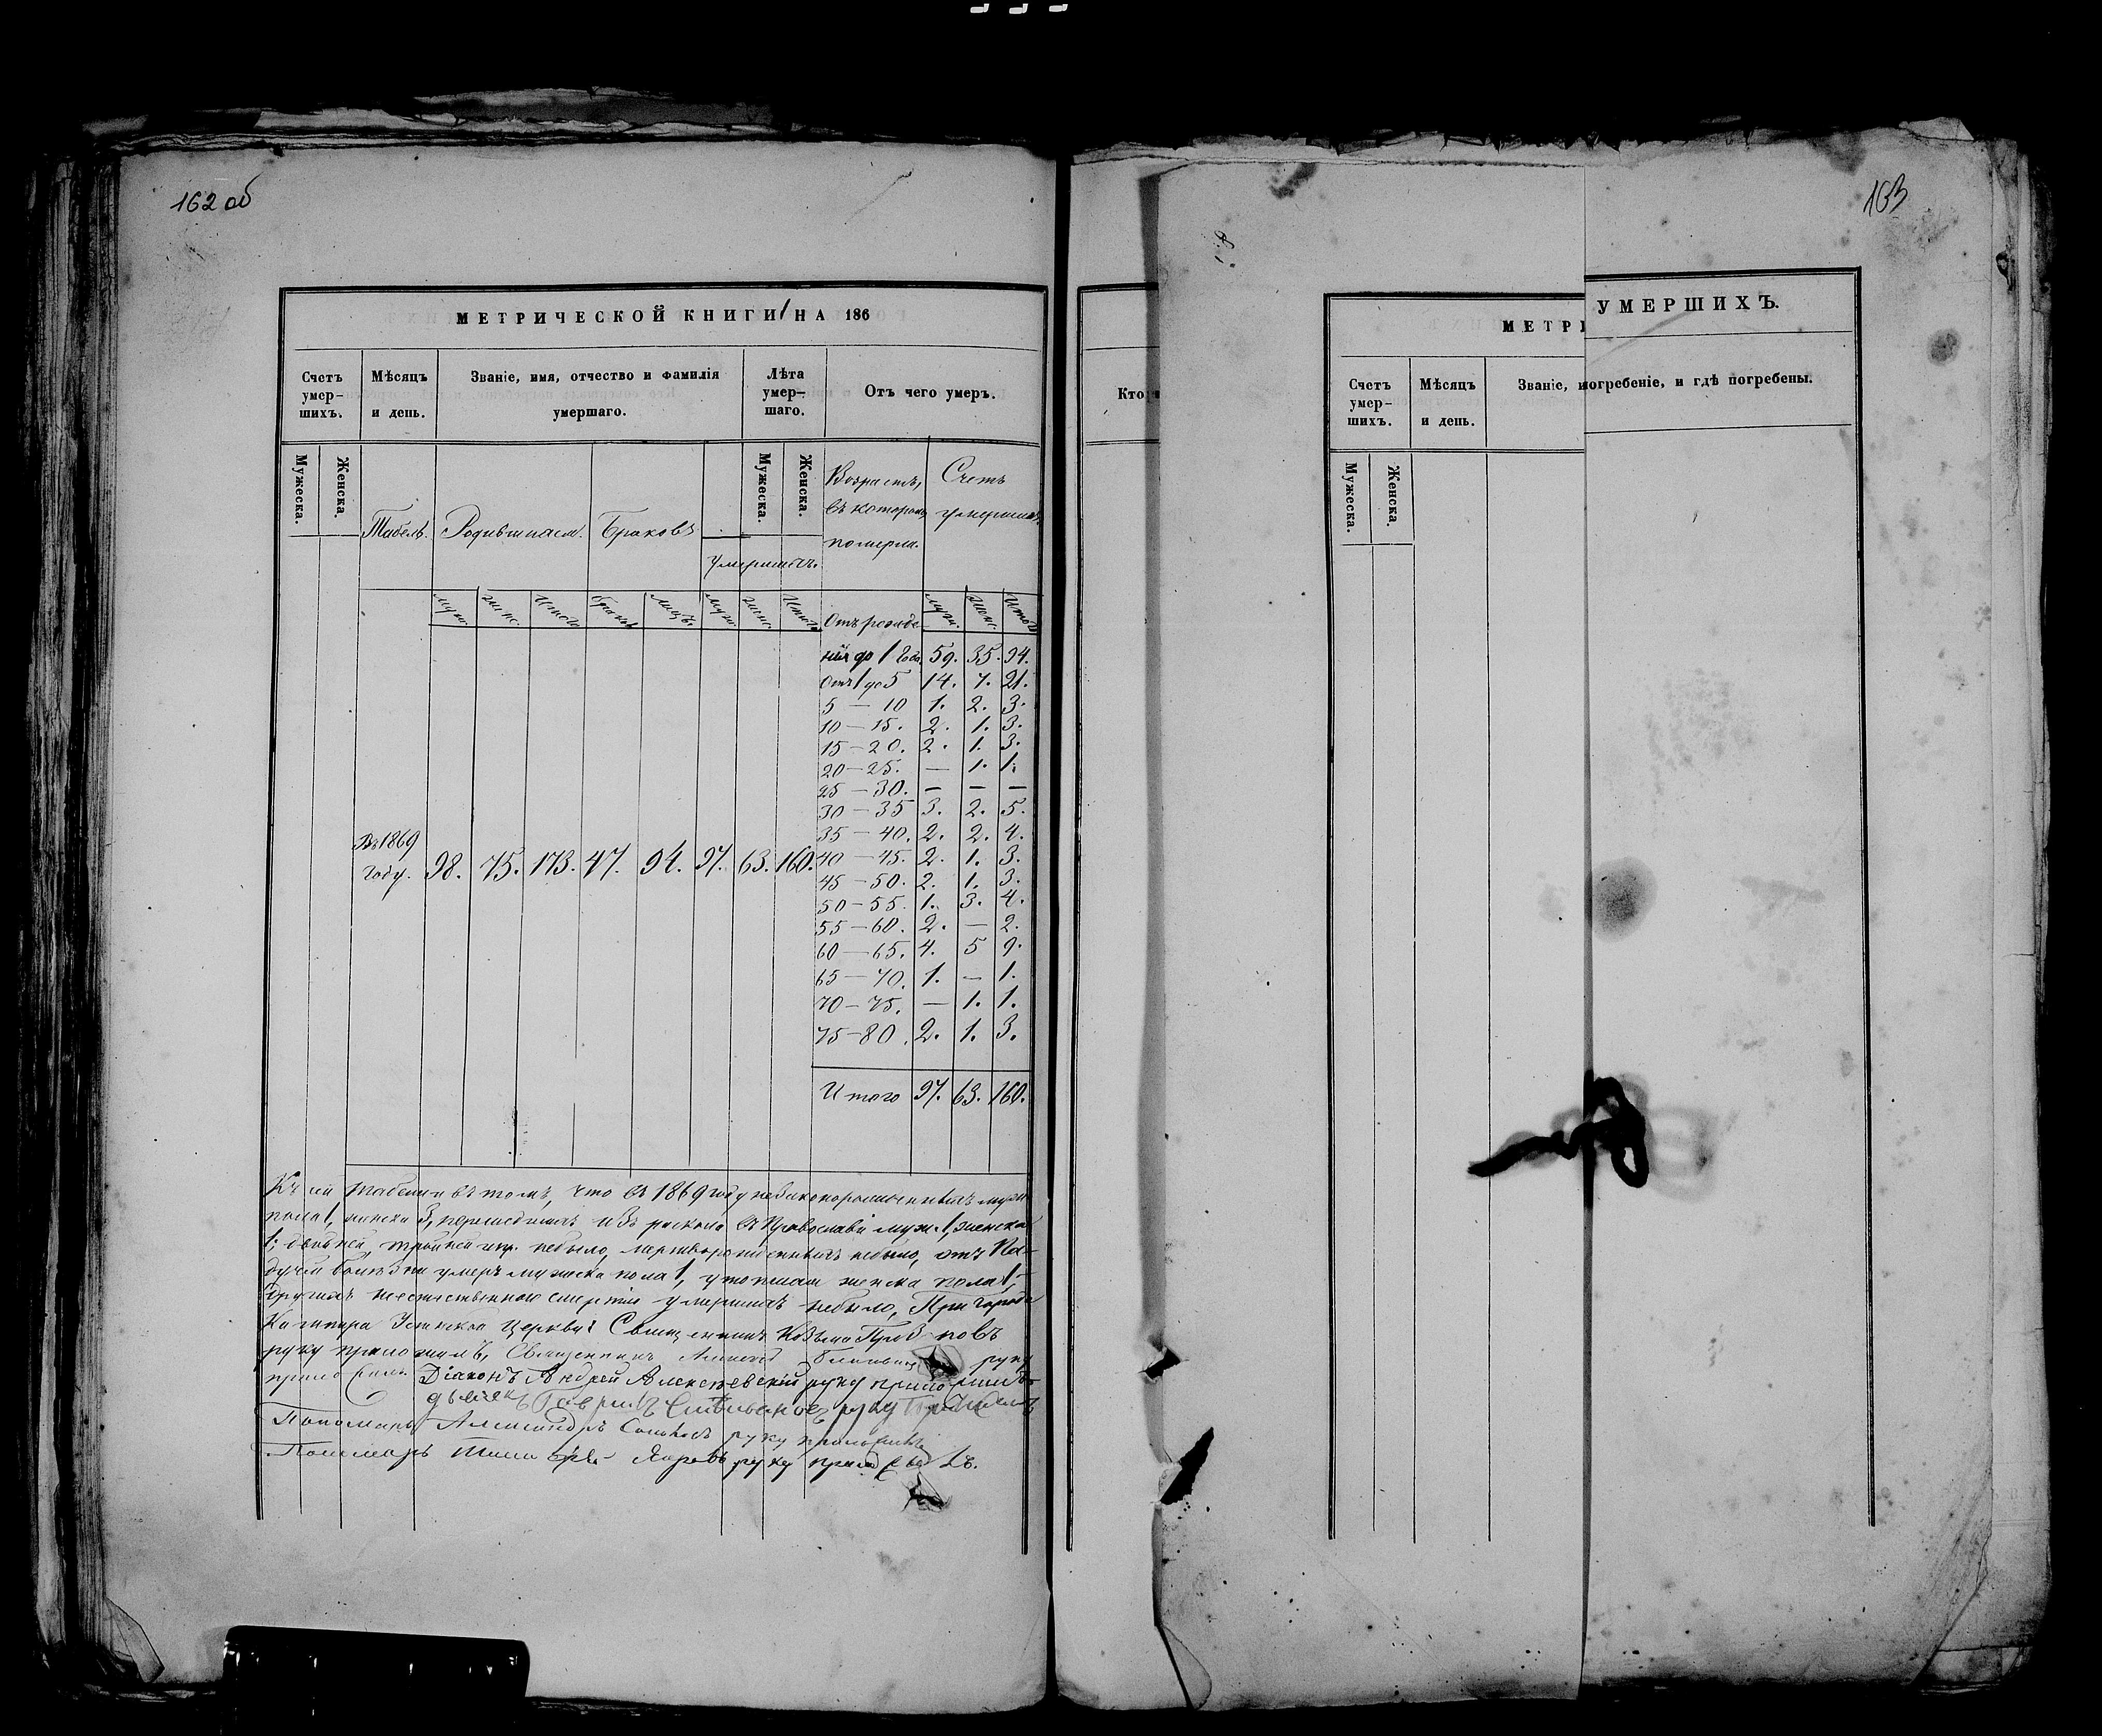 162 об
МЕТРИЧЕСКОЙ КНИГИ НА 186
Счетъ умер-шихъ. Мѣсяцъ и день. Званіе, имя, отчество и фамилія умершаго. Лѣта умер-шаго. Отъ чего умеръ.
Мужеска. Женска. Мужеска. Женска.
Табель. Родившихся. Браковъ Умершихъ.
Возрастъ, въ которомъ померли. Счетъ умершихъ.
муж. женс. Итого Браковъ лицъ. муж. женс. Итого муж. женс. Итого
Отъ рожде-
нія до 1 года 59. 35. 94.
Отъ 1 до 5 14. 7. 21.
5 — 10 1. 2. 3.
10 — 15. 2. 1. 3.
15 — 20. 2. 1. 3.
20 — 25. — 1. 1.
25 — 30. — — —
30 — 35 3. 2. 5.
35 — 40. 2. 2. 4.
Въ 1869 году. 98. 75. 173. 47. 94. 97. 63. 160.
40 — 45. 2. 1. 3.
45 — 50. 2. 1. 3.
50 — 55. 1. 3. 4.
55 — 60. 2. — 2.
60 — 65. 4. 5 9.
65 — 70. 1. — 1.
70 — 75. — 1. 1.
75 — 80. 2. 1. 3.
Итого 97. 63. 160.
Къ сей табели въ томъ, что въ 1869 году незаконорожденныхъ муж.
пола 1, женска 3, перешедшихъ изъ раскола въ Православіе муж. 1, женска
1; двойней, тройней и пр. небыло, мертворожденныхъ небыло, отъ Па-
дучей болѣзни умеръ мужеска пола 1, утопшая женска пола 1,
другихъ неестественною смертію умершихъ небыло, При города
Церкви Священникъ Козьма
руку приложилъ, Священникъ руку
приложилъ. Діаконъ Андрей Алексѣевскій руку приложилъ
дьячекъ руку приложилъ
Пономарь Александръ руку приложилъ
Пономарь руку приложилъ.
163
Кто
МЕТРИ
УМЕРШИХЪ.
Счетъ умер-шихъ. Мѣсяцъ и день. Званіе, погребеніе, и гдѣ погребены.
Мужеска. Женска.